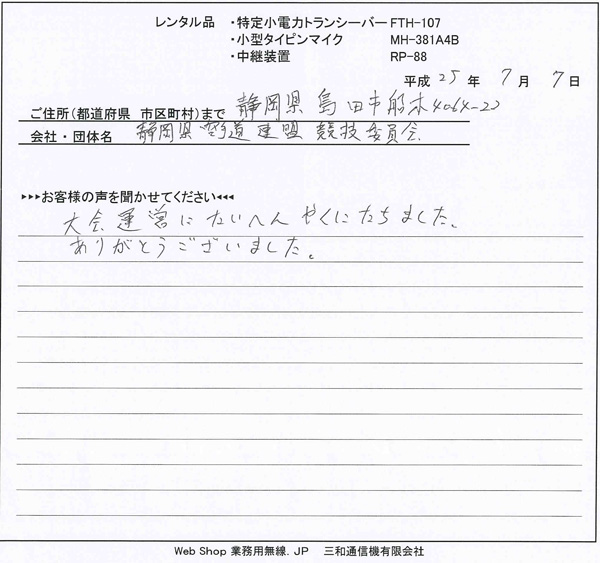 レンタル品 ・特定小電力トランシーバー FTH-107
・小型タイピンマイク MH-381A4B
・中継装置 RP-88
平成 25 年 7 月 7 日
ご住所(都道府県 市区町村)まで 静岡県 島田市船木4064-22
会社・団体名 静岡県 道連盟 競技委員会
▶▶▶お客様の声を聞かせてください◀◀◀
大会運営にたいへん やくにたちました。
ありがとうございました。
Web Shop 業務用無線.JP 三和通信機有限会社